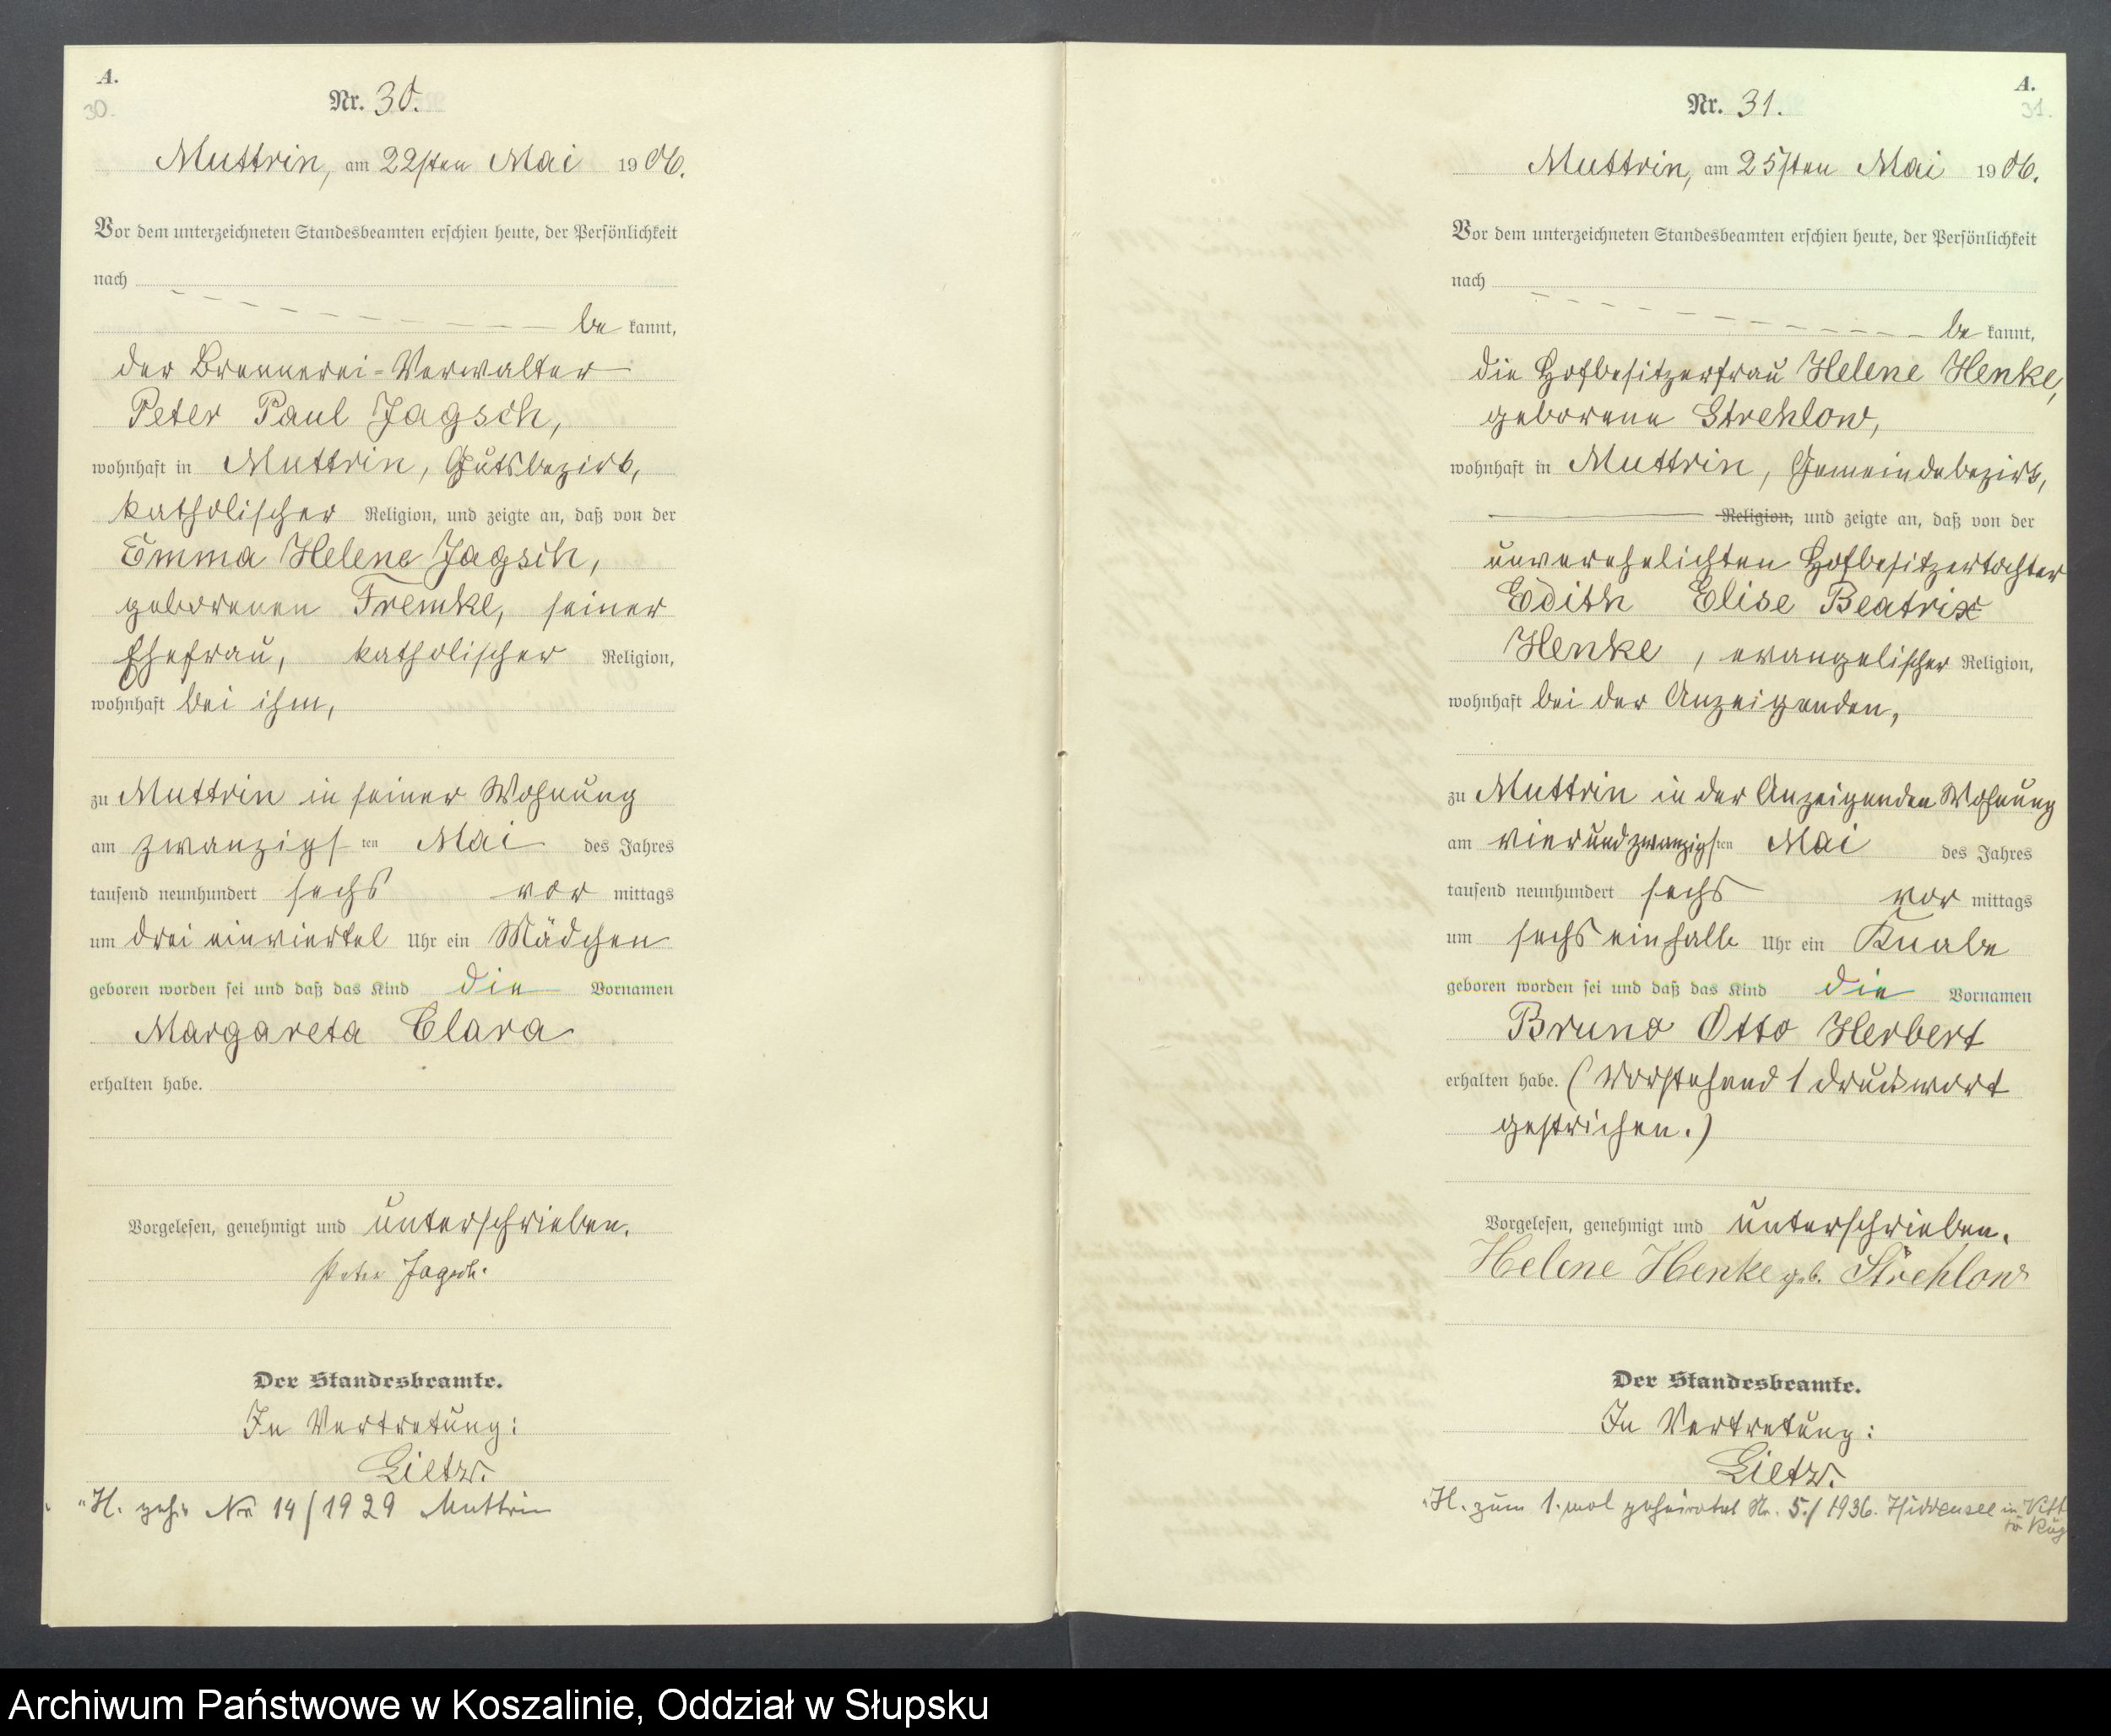 A.
30.
Nr. 30.
Muttrin, am 22sten Mai 1906.
Vor dem unterzeichneten Standesbeamten erschien heute, der Persönlichkeit
nach
be kannt,
der Brennerei-Verwalter
Peter Paul Jagsch,
wohnhaft in Muttrin, Gutsbezirk,
katholischer Religion, und zeigte an, daß von der
Emma Helene Jagsch,
geborenen Fremke, seiner
Ehefrau, katholischer Religion,
wohnhaft bei ihm,
zu Muttrin in seiner Wohnung
am zwanzigs ten Mai des Jahres
tausend neunhundert sechs vor mittags
um drei einviertel Uhr ein Mädchen
geboren worden sei und daß das Kind die Vornamen
Margareta Clara
erhalten habe.
Vorgelesen, genehmigt und unterschrieben.
Peter Jagsch.
Der Standesbeamte.
In Vertretung:
Lietz.
H. geh. Nr 14/1929 Muttrin
A.
31.
Nr. 31.
Muttrin, am 25sten Mai 1906.
Vor dem unterzeichneten Standesbeamten erschien heute, der Persönlichkeit
nach
be kannt,
die Hofbesitzerfrau Helene Henke,
geborene Strehlow,
wohnhaft in Muttrin, Gemeindebezirk,
Religion, und zeigte an, daß von der
unverehelichten Hofbesitzertochter
Edith Elise Beatrix
Henke, evangelischer Religion,
wohnhaft bei der Anzeigenden,
zu Muttrin in der Anzeigenden Wohnung
am vierundzwanzigs ten Mai des Jahres
tausend neunhundert sechs vor mittags
um sechs einhalb Uhr ein Knabe
geboren worden sei und daß das Kind die Vornamen
Bruno Otto Herbert
erhalten habe. (Vorstehend 1 Druckwort
gestrichen.)
Vorgelesen, genehmigt und unterschrieben.
Helene Henke geb. Strehlow
Der Standesbeamte.
In Vertretung:
Lietz.
H. zum 1. mal geheiratet Nr. 5./1936. Hiddensee in Vitt
Rüg
Archiwum Państwowe w Koszalinie, Oddział w Słupsku